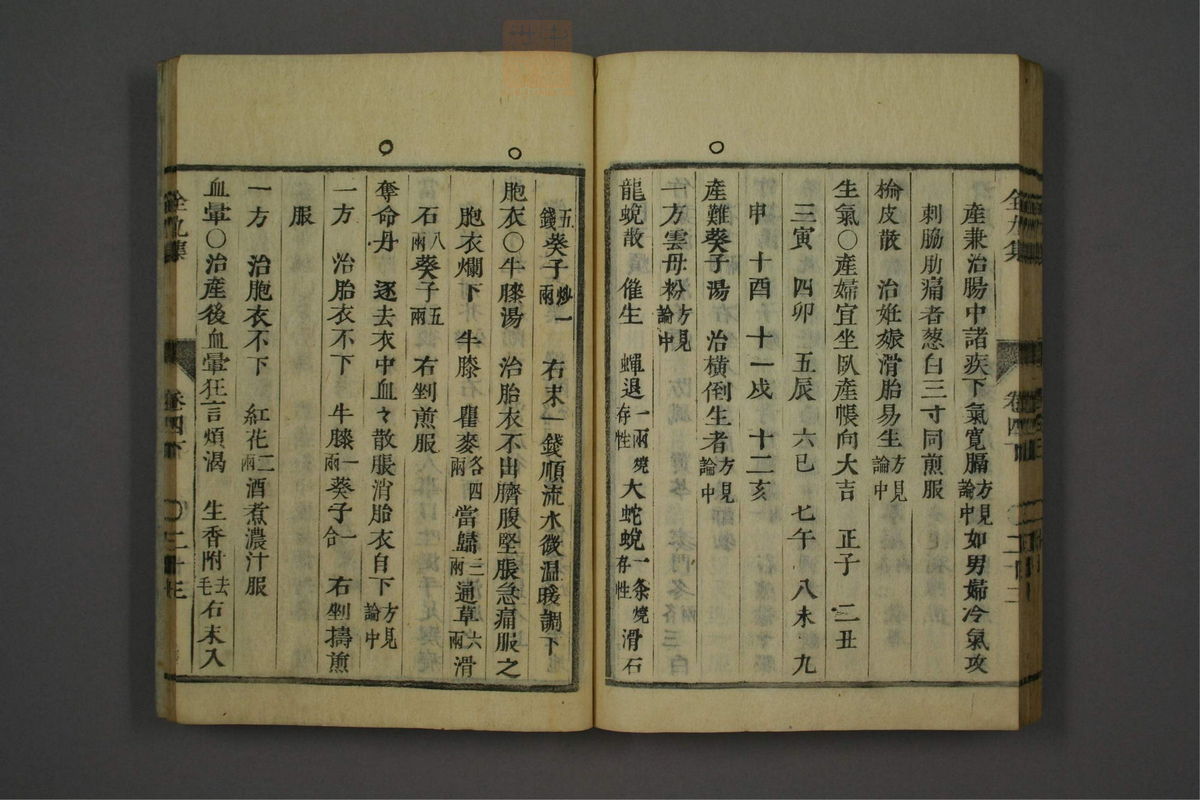 產兼治腸中諸疾下氣寬膈方見論中如男婦冷氣攻
刺脇肋痛者葱白三寸同煎服
榆皮散　治姙娠滑胎易生方見論中
生氣○產婦宜坐臥產帳向大吉　正子　二丑
三寅　四卯　五辰　六巳　七午　八未　九
申　十酉　十一戌　十二亥
產難葵子湯　治橫倒生者方見論中
一方雲母粉方見論中
龍蛻散　催生　蟬退一兩燒存性大蛇蛻一条燒存性滑石
五錢葵子炒一兩　右末一錢順流水微温暖調下
胞衣○牛膝湯　治胎衣不出臍腹堅脹急痛服之
胞衣爛下　牛膝　瞿麥各四兩當歸三兩通草六兩滑
石八兩葵子五兩　右剉煎服
奪命丹　逐去衣中血々散脹消胎衣自下方見論中
一方　治胎衣不下　牛膝一兩葵子一合　右剉擣煎
服
一方　治胞衣不下　紅花二兩酒煮濃汁服
血暈○治產後血暈狂言煩渴　生香附去毛右末入
全九集
卷四下
二十三